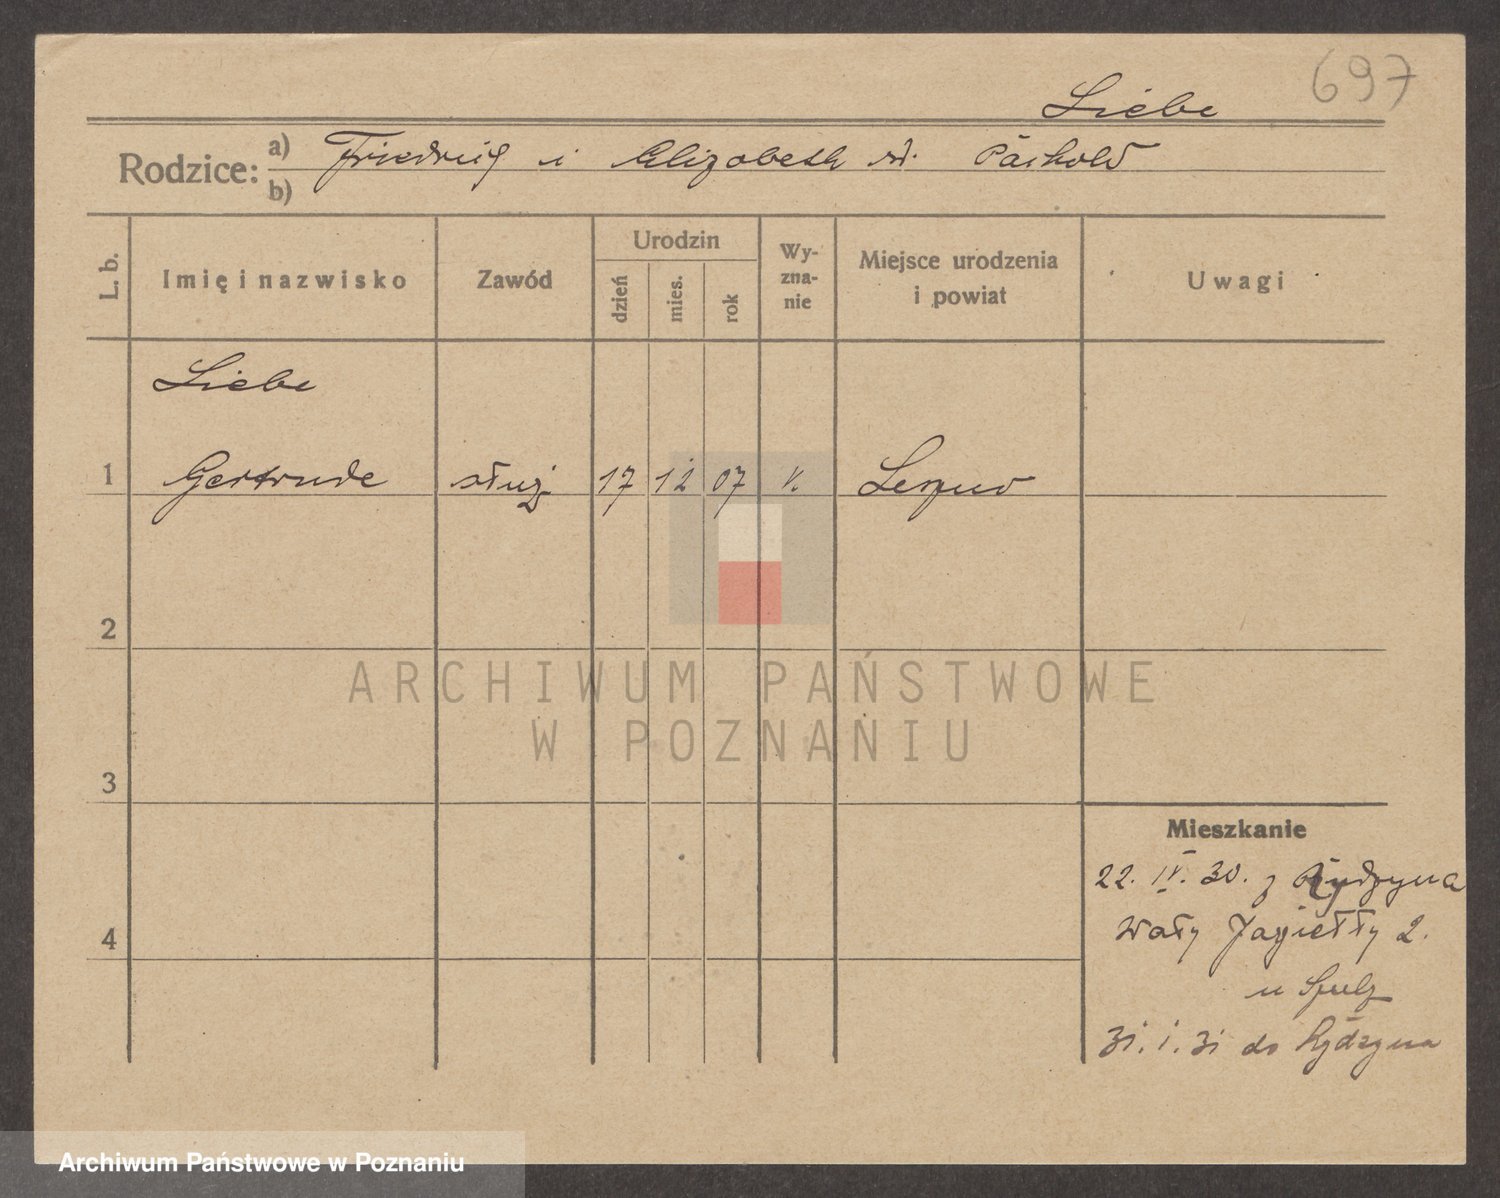 697
Liebe
Rodzice: a) Friedrich i Elizabeth
b)
L. b. Imię i nazwisko Zawód Urodzin dzień mies. rok Wyznanie Miejsce urodzenia i powiat Uwagi
Liebe
1 Gertrude służ. 17 12 07
2
3
4
Mieszkanie
22. IV. 30. z Rydzyna
Wały Jagiełły 2.
u
31. 1. 31 do Rydzyna
ARCHIWUM PAŃSTWOWE
W POZNANIU
Archiwum Państwowe w Poznaniu